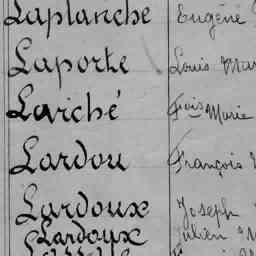 Laplanche Eugène
Laporte Louis Mar
Larché Fois Marie
Lardou François
Lardoux Joseph
Lardoux Julien M